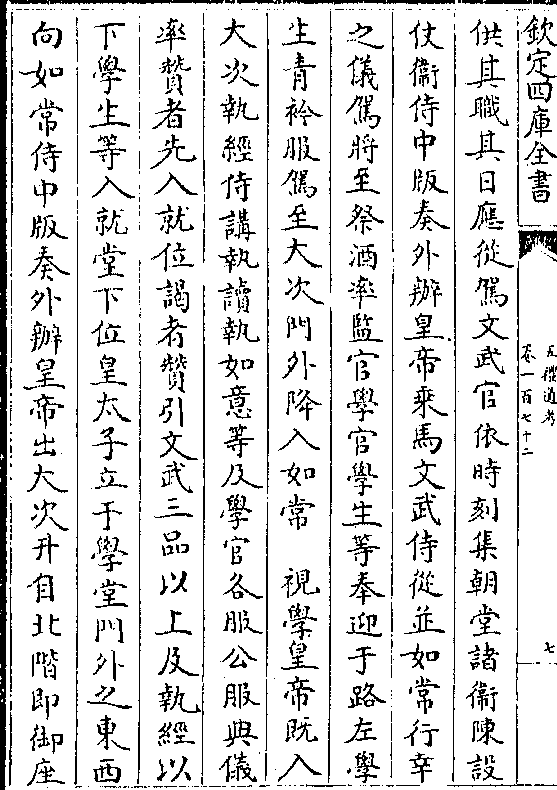 欽定四庫全書
五禮通考
卷一百七十二
七
供其職其日應從駕文武官依時刻集朝堂諸衞陳設
仗衞侍中版奏外辦皇帝乘馬文武侍從並如常行幸
之儀駕將至祭酒率監官學官學生等奉迎于路左學
生青衿服駕至大次門外降入如常　視學皇帝既入
大次執經侍講執讀執如意等及學官各服公服典儀
率贊者先入就位謁者贊引文武三品以上及執經以
下學生等入就堂下位皇太子立于學堂門外之東西
向如常侍中版奏外辦皇帝出大次升自北階即御座